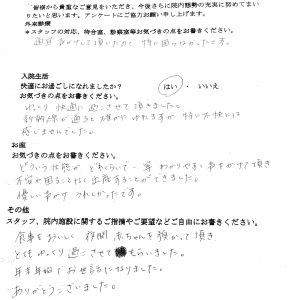 皆様から貴重なご意見をいただき、今後さらに院内感態の充実に努めてまい
りたいと思います。アンケートにご協力お願い申し上げます。
外来診療
*スタッフの対応、待合室、診察室等お気づきの点をお書きください。
入院生活
快適にお過ごしになれましたか？ はい ・ いいえ
お気づきの点をお書きください。
ゆっくり 快適に過ごさせて頂きました。
新幹線が通ると 揺れが 特に不快には
感じませんでした。
お産
お気づきの点をお書きください。
どういう状態か どれくらいで… 等 わかりやすく 声をかけて頂き
不安や困ることなく 出産することができました。
優しい声かけ うれしかったです。
その他
スタッフ、院内施設に関するご指摘やご要望などご自由にお書きください。
食事もおいしく 夜間、赤ちゃんを預かって頂き
とてもゆっくり過ごさせてもらいました。
年末年始でお世話になりました。
ありがとうございました。